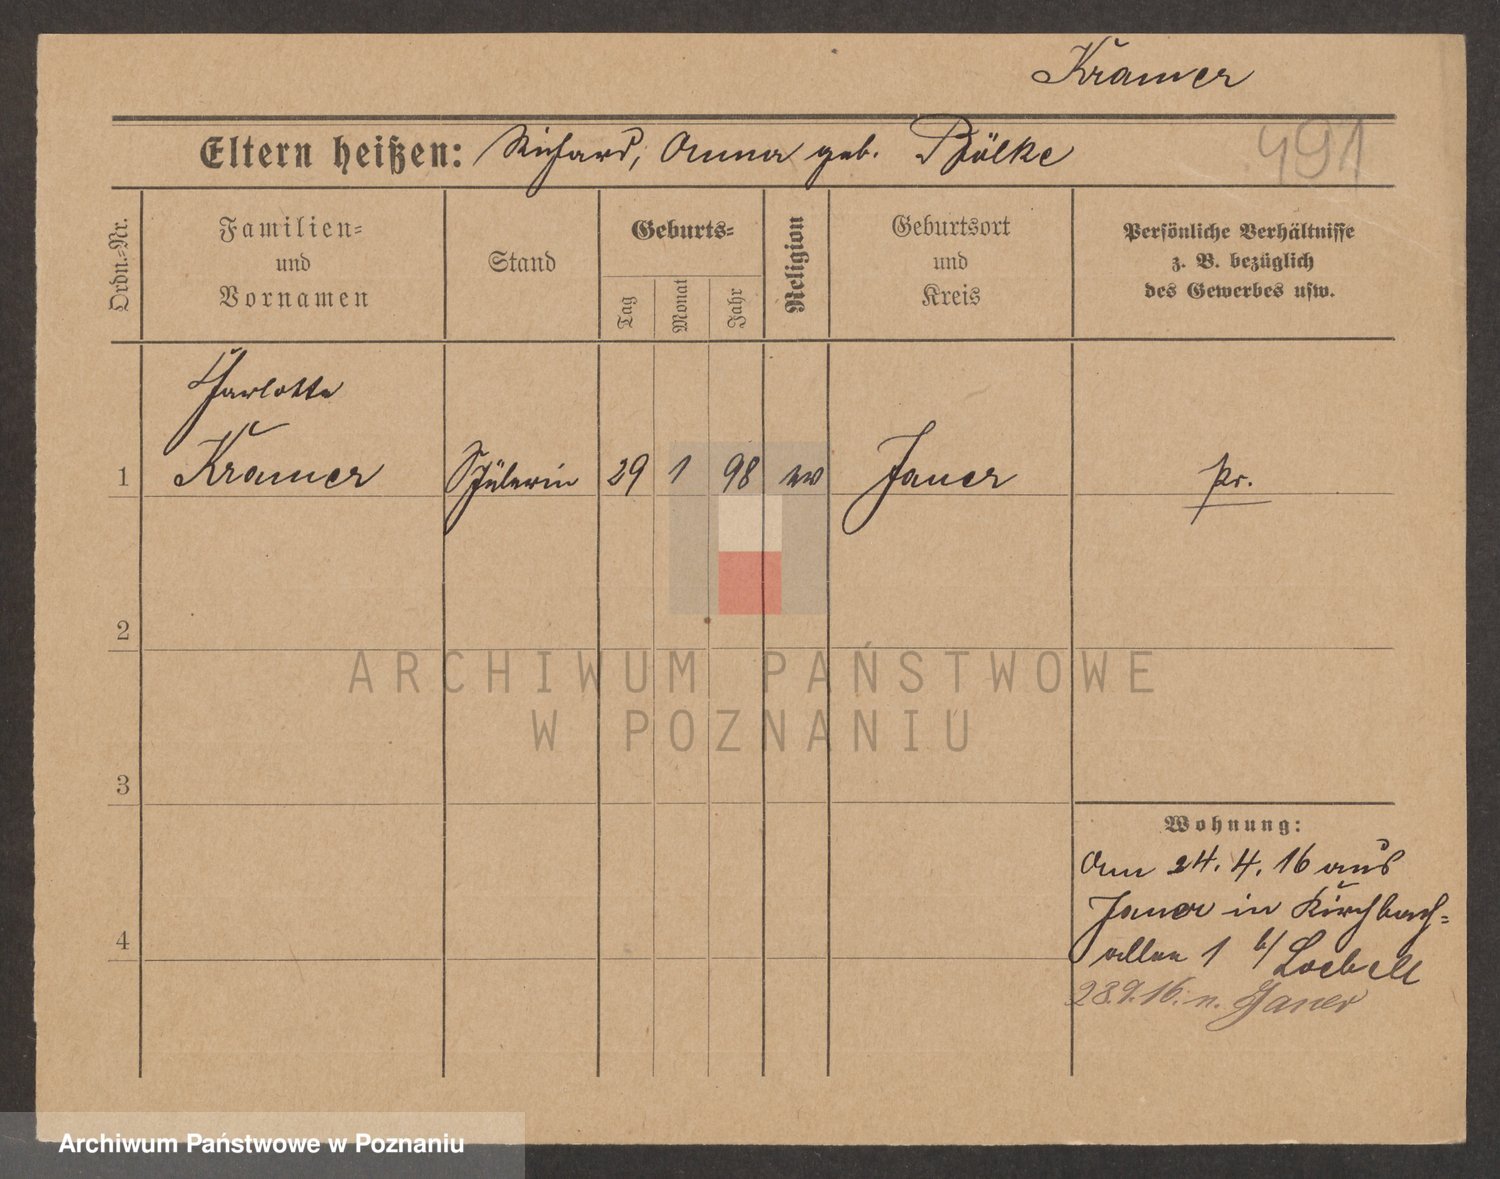 Kramer
Eltern heißen: Richard, Anna geb. Bölke
491
Ordn.-Nr.
Familien-
und
Vornamen
Stand
Geburts-
Tag
Monat
Jahr
Religion
Geburtsort
und
Kreis
Persönliche Verhältnisse
z. B. bezüglich
des Gewerbes usw.
Charlotte
1 Kramer Schülerin 29 1 98 ev Jauer Pr.
2
3
4
Wohnung:
Am 24. 4. 16 aus
Jauer in Kirchbach-
allee 1 b/ Loebell
28.9.16. n. Jauer
ARCHIWUM PAŃSTWOWE
W POZNANIU
Archiwum Państwowe w Poznaniu